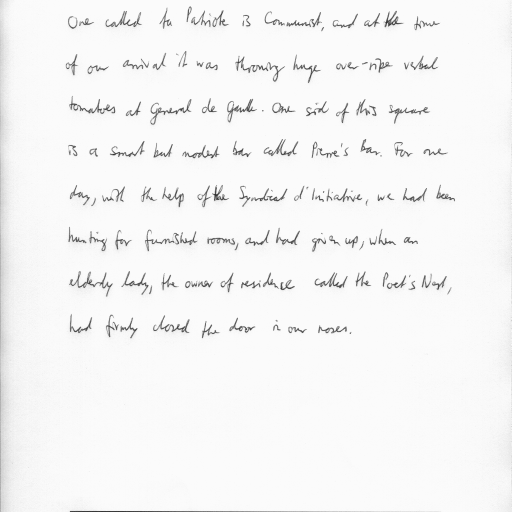 One called the Patriote is Communist, and at the time
of our arrival it was throwing huge over-ripe verbal
tomatoes at General de Gaulle. One side of this square
is a smart but modest bar called Pierre's Bar. For one
day, with the help of the Syndicat d'Initiative, we had been
hunting for furnished rooms, and had given up, when an
elderly lady, the owner of residence called the Poet's Nest,
had firmly closed the door in our noses.